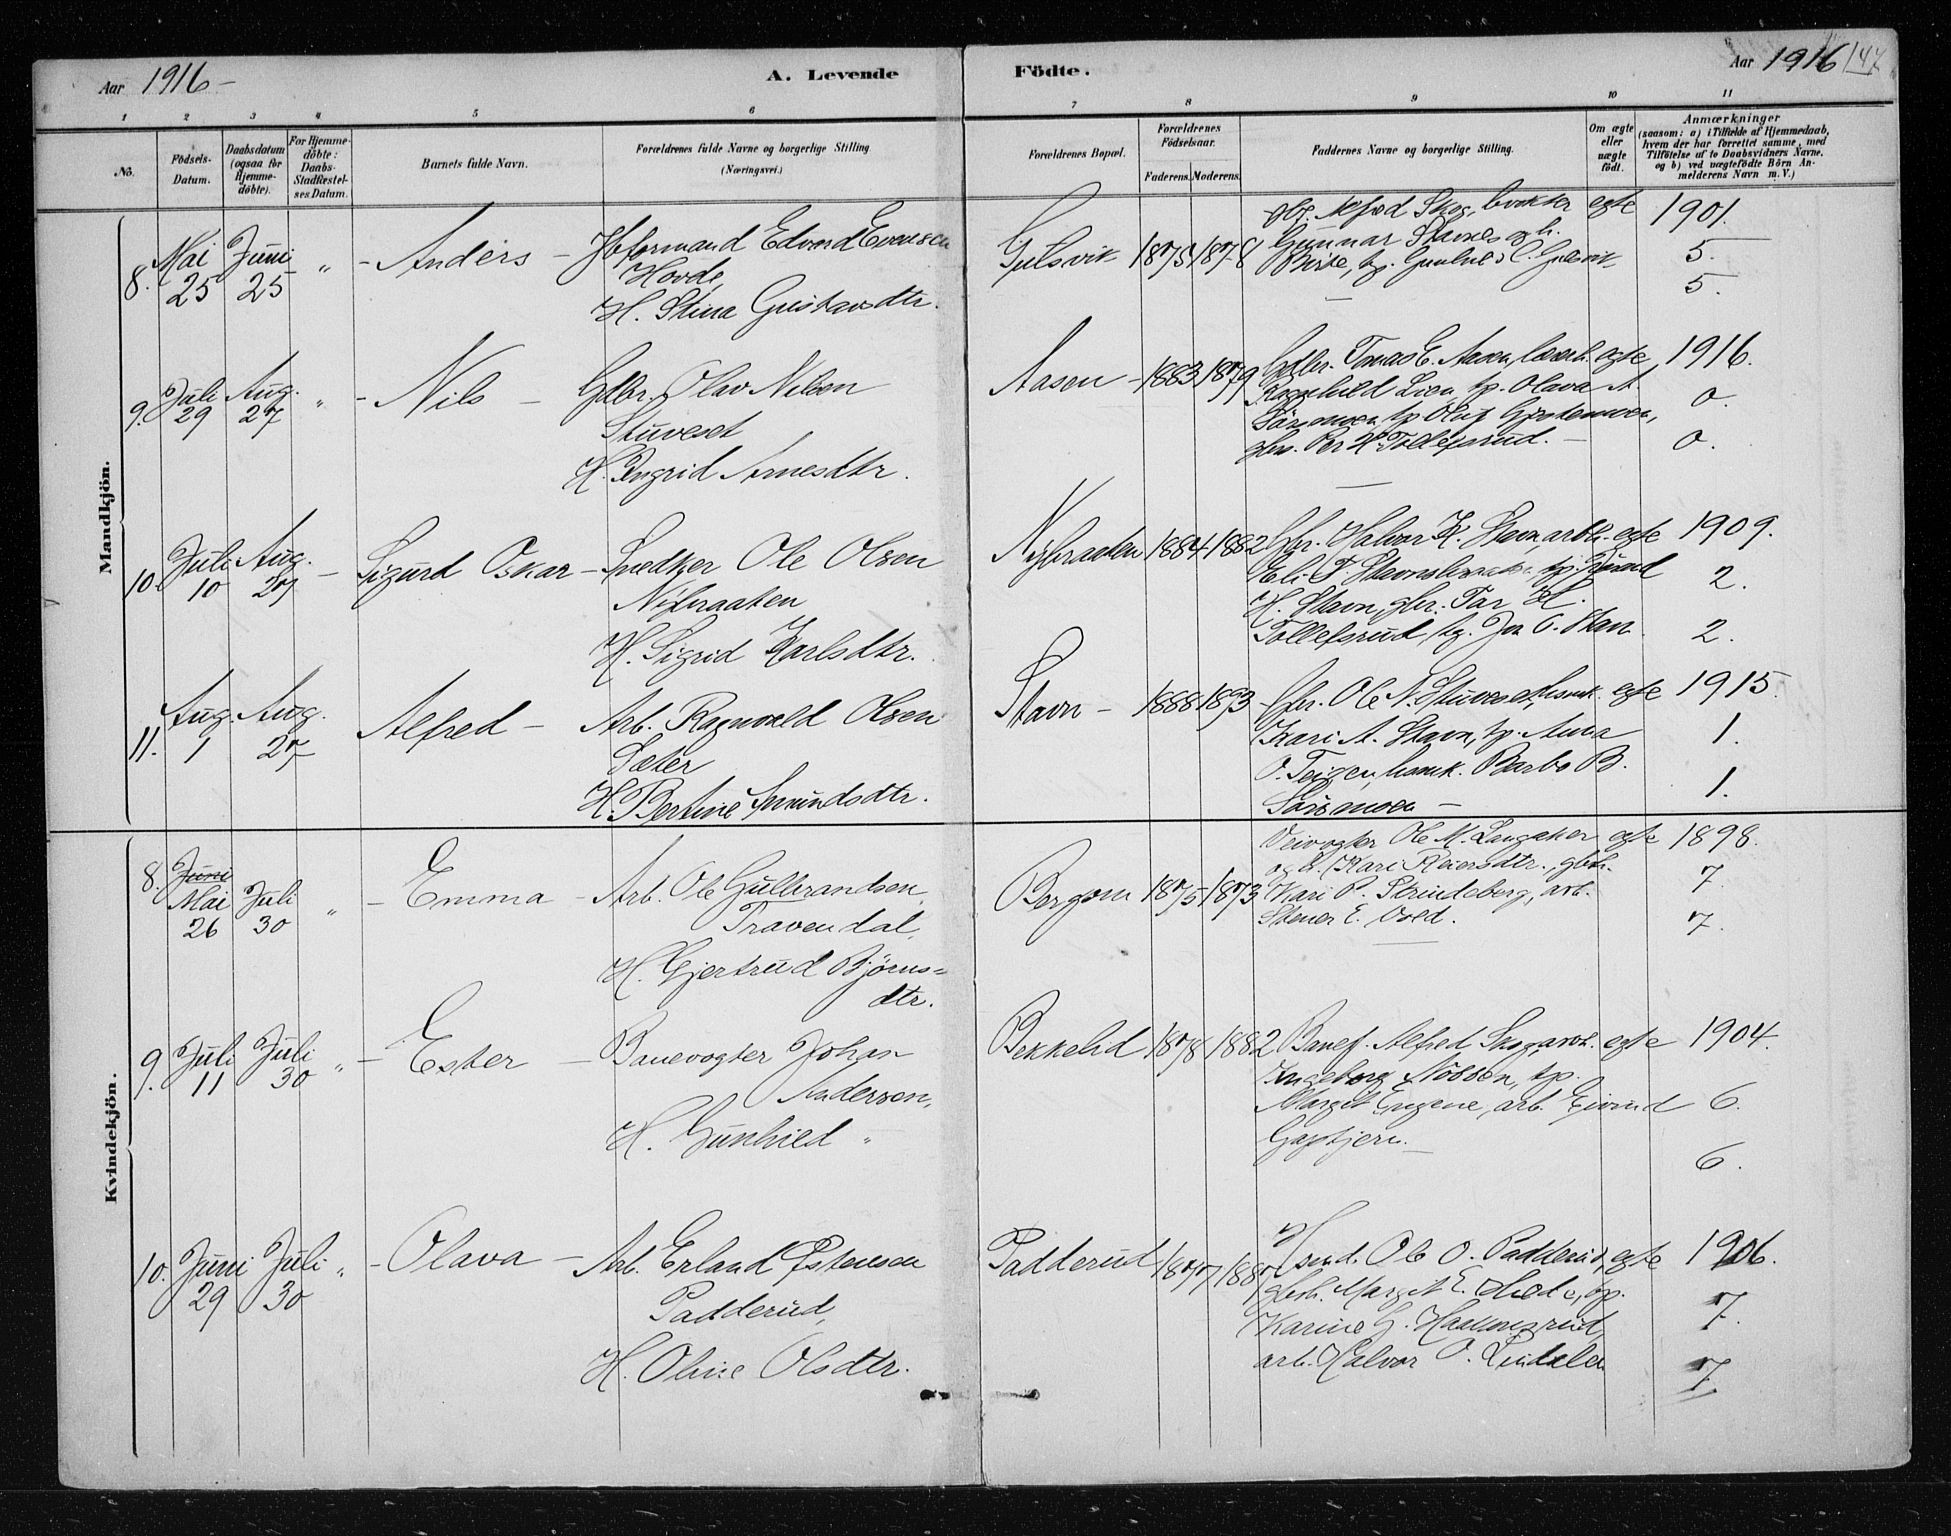 Aar 1916 –
A. Levende Födte.
Aar 1916
147
1 2 3 4 5 6 7 8 9 10 11
No.
Födsels-Datum.
Daabsdatum (ogsaa for Hjemme-döbte).
For Hjemme-döbte: Daabs-Stadfæstel-ses Datum.
Barnets fulde Navn.
Forældrenes fulde Navne og borgerlige Stilling (Næringsvei.)
Forældrenes Bopæl.
Forældrenes Födselsaar.
Faderens. Moderens.
Faddernes Navne og borgerlige Stilling.
Om ægte eller uægte födt.
Anmærkninger
(saasom: a) i Tilfælde af Hjemmedaab,
hvem der har forrettet samme, med
Tilföielse af to Daabsvidners Navne,
og b) ved uægtefödte Börn An-
melderens Navn m. V.)
Mandkjön.
8. Mai 25 Juni 25 " – Anders –
Edvard Evensen
Hovde,
H. Stina Gustavsdtr.
Gulsvik 1875 1878
Alfred Skog,
Gunnar
egte 1901.
5.
5.
9. Juli 29 Aug. 27 " – Nils –
Gdbr. Olav Nilsen
Stuveset
H. Ingrid Arnesdtr.
Aasen – 1883 1879
Gdbr. Tomas E. Aasen,
Ragnhild Lien, tp. Olava A.
Sörsmoen, tp. Oluf
gbr. Per H. Tollefsrud. –
egte 1916.
0.
0.
10. Juli 10 Aug. 27 – Sigurd Oskar –
Snedker Ole Olsen
Nybraaten
H. Sigrid Karlsdtr.
Nybraaten 1884 1882
Gbr. Halvor K. Stavn, arb.
Eli T.
H. Stavn, gbr. Tar H.
Tollefsrud, tp. Jon O. Stavn
egte 1909.
2.
2.
11. Aug. 1 Aug. 27 Alfred –
Arb. Ragnvald Olsen
Sæter
H. Bertine Amundsdtr.
Stavn – 1888 1893
Gbr. Ole N. Stuveset,
Kari A. Stavn, tp. Anna
O. Teigen, husmk. Barbo B.
Sörsmoen –
egte 1915.
1.
1.
Kvindekjön.
8. Juni
Mai 26 Juli 30 " – Emma –
Arb. Ole Gulbrandsen
Travendal,
H. Gjertrud Björns=
dtr.
Bergom 1875 1873
Veivogter Ole M. Langaker
og h. Kari Reiersdtr.,
Kari P. Strindeberg, arb.
Stener E. Vold.
egte 1898.
7.
7.
9. Juli 11 Juli 30 " – Ester –
Banevogter Johan
Andersen,
H. Gunhild "
Bekkelid 1878 1882
Banef. Alfred Skog, arb.
Ingeborg Nöbben, tp.
Margit Engene, arb. Eivind
Gaptjern. –
egte 1904.
6.
6.
10. Juni 29 Juli 30 " – Olava –
Arb. Erland Østensen
Padderud,
H. Oline Olsdtr.
Padderud 1877
Ole O. Padderud,
Margit E. tp.
Karine G. Haavorsrud,
arb. Halvor O. Lindelien
egte 1906.
7.
7.